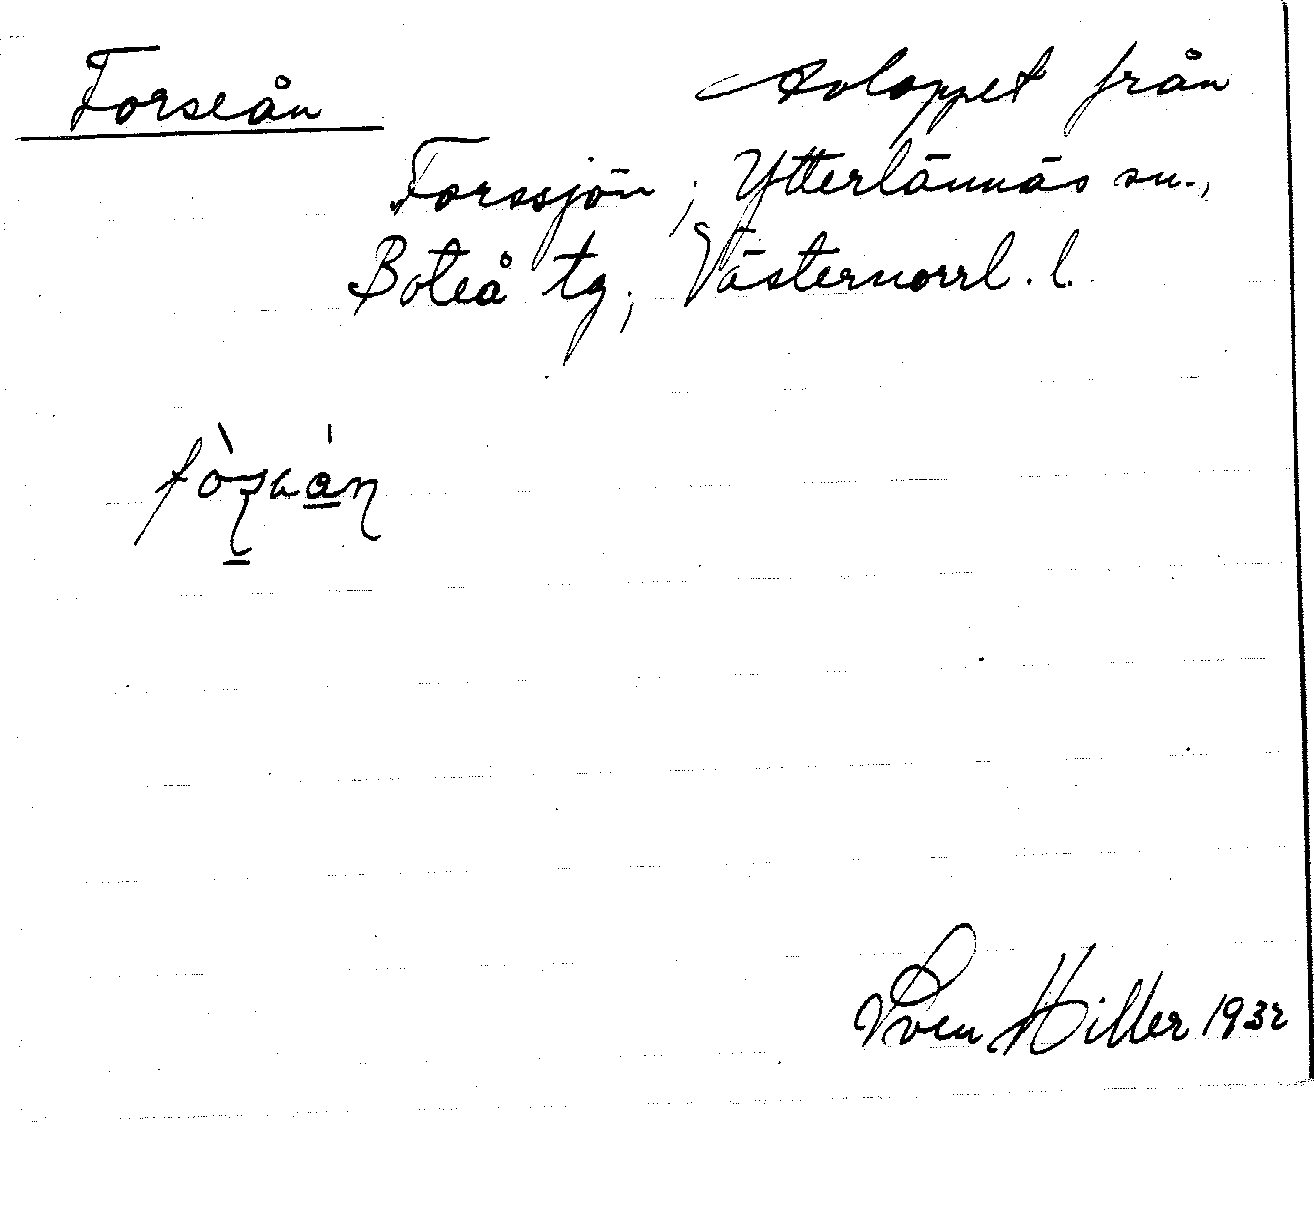 Forseån Avloppet från
Forssjön, Ytterlännäs sn.,
Boteå tg, Västernorrl. l.
Sven Hiller 1932